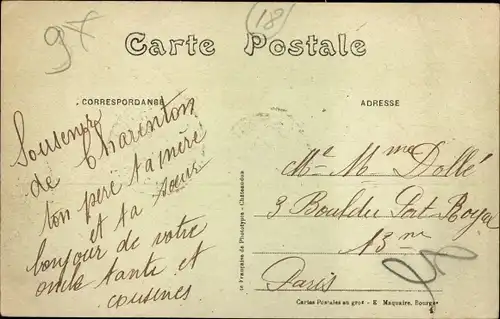 97
18
Carte Postale
CORRESPONDANCE
ADRESSE
Souvenir
de Charenton
ton pere ta mère
et ta sœur
bonjour de votre
oncle tante et
cousines
Mr Mme Dollé
3 Bould du Port-Royal
13me
Paris
ie Française de Phototypie - Châteaudun
Cartes Postales en gros - E Maquaire, Bourges